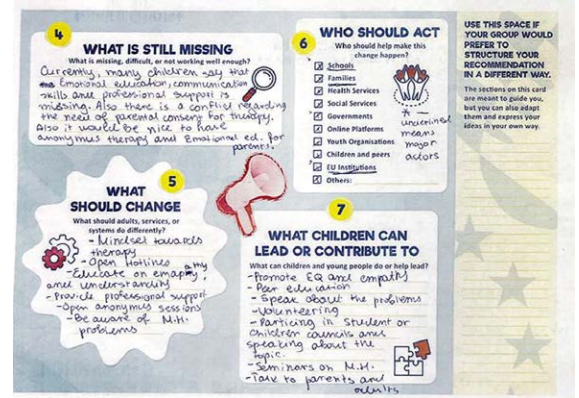 4
WHAT IS STILL MISSING
What is missing, difficult, or not working well enough?
Currently, many children say that
Emotional education, communication
skills and professional support is
missing. Also there is a conflict regarding
the need of parental consent for therapy.
Also it would be nice to have
anonymus therapy and Emotional ed. for
parents.
5
WHAT
SHOULD CHANGE
What should adults, services, or
systems do differently?
- Mindset towards
therapy
- Open Hotlines
- Educate on empathy
and understanding
- Provide professional support
- Open anonymus sessions
- Be aware of M.H.
problems
6
WHO SHOULD ACT
Who should help make this
change happen?
Schools
Families
Health Services
Social Services
Governments
Online Platforms
Youth Organisations
Children and peers
EU Institutions
Others:
* underlined
means
major
actors
7
WHAT CHILDREN CAN
LEAD OR CONTRIBUTE TO
What can children and young people do or help lead?
- Promote EQ and empathy
- Peer education
- Speak about the problems
- Volunteering
- Particing in Student or
children councils and
speaking about the
topic.
- Seminars on M.H.
- Talk to parents and
adults
USE THIS SPACE IF
YOUR GROUP WOULD
PREFER TO
STRUCTURE YOUR
RECOMMENDATION
IN A DIFFERENT WAY.
The sections on this card
are meant to guide you,
but you can also adapt
them and express your
ideas in your own way.